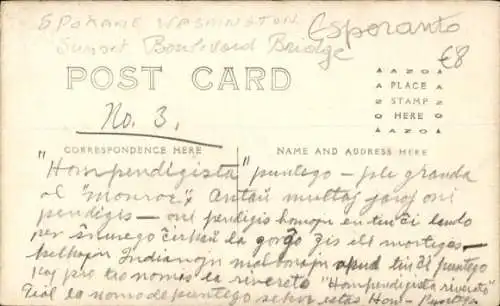 SPOKANE WASHINGTON
Esperanto
Sunset Boulevard Bridge
€8
POST CARD
AZO
PLACE
STAMP
HERE
AZO
No. 3.
CORRESPONDENCE HERE
NAME AND ADDRESS HERE
"Hompendigista" pontego - ple granda
ol "Monroe". Antaŭ multaj jaroj oni
pendigis - oni pendigis homojn en tiu ĉi lando
per ŝnurego ĉirkaŭ la gorĝo ĝis ili mortigas -
kelkajn Indianojn malbonajn apud tiu ĉi pontego
kaj pro tio nomis la rivereto "Hompendigista rivereto
Tial la nomo de pontego estas Hom-